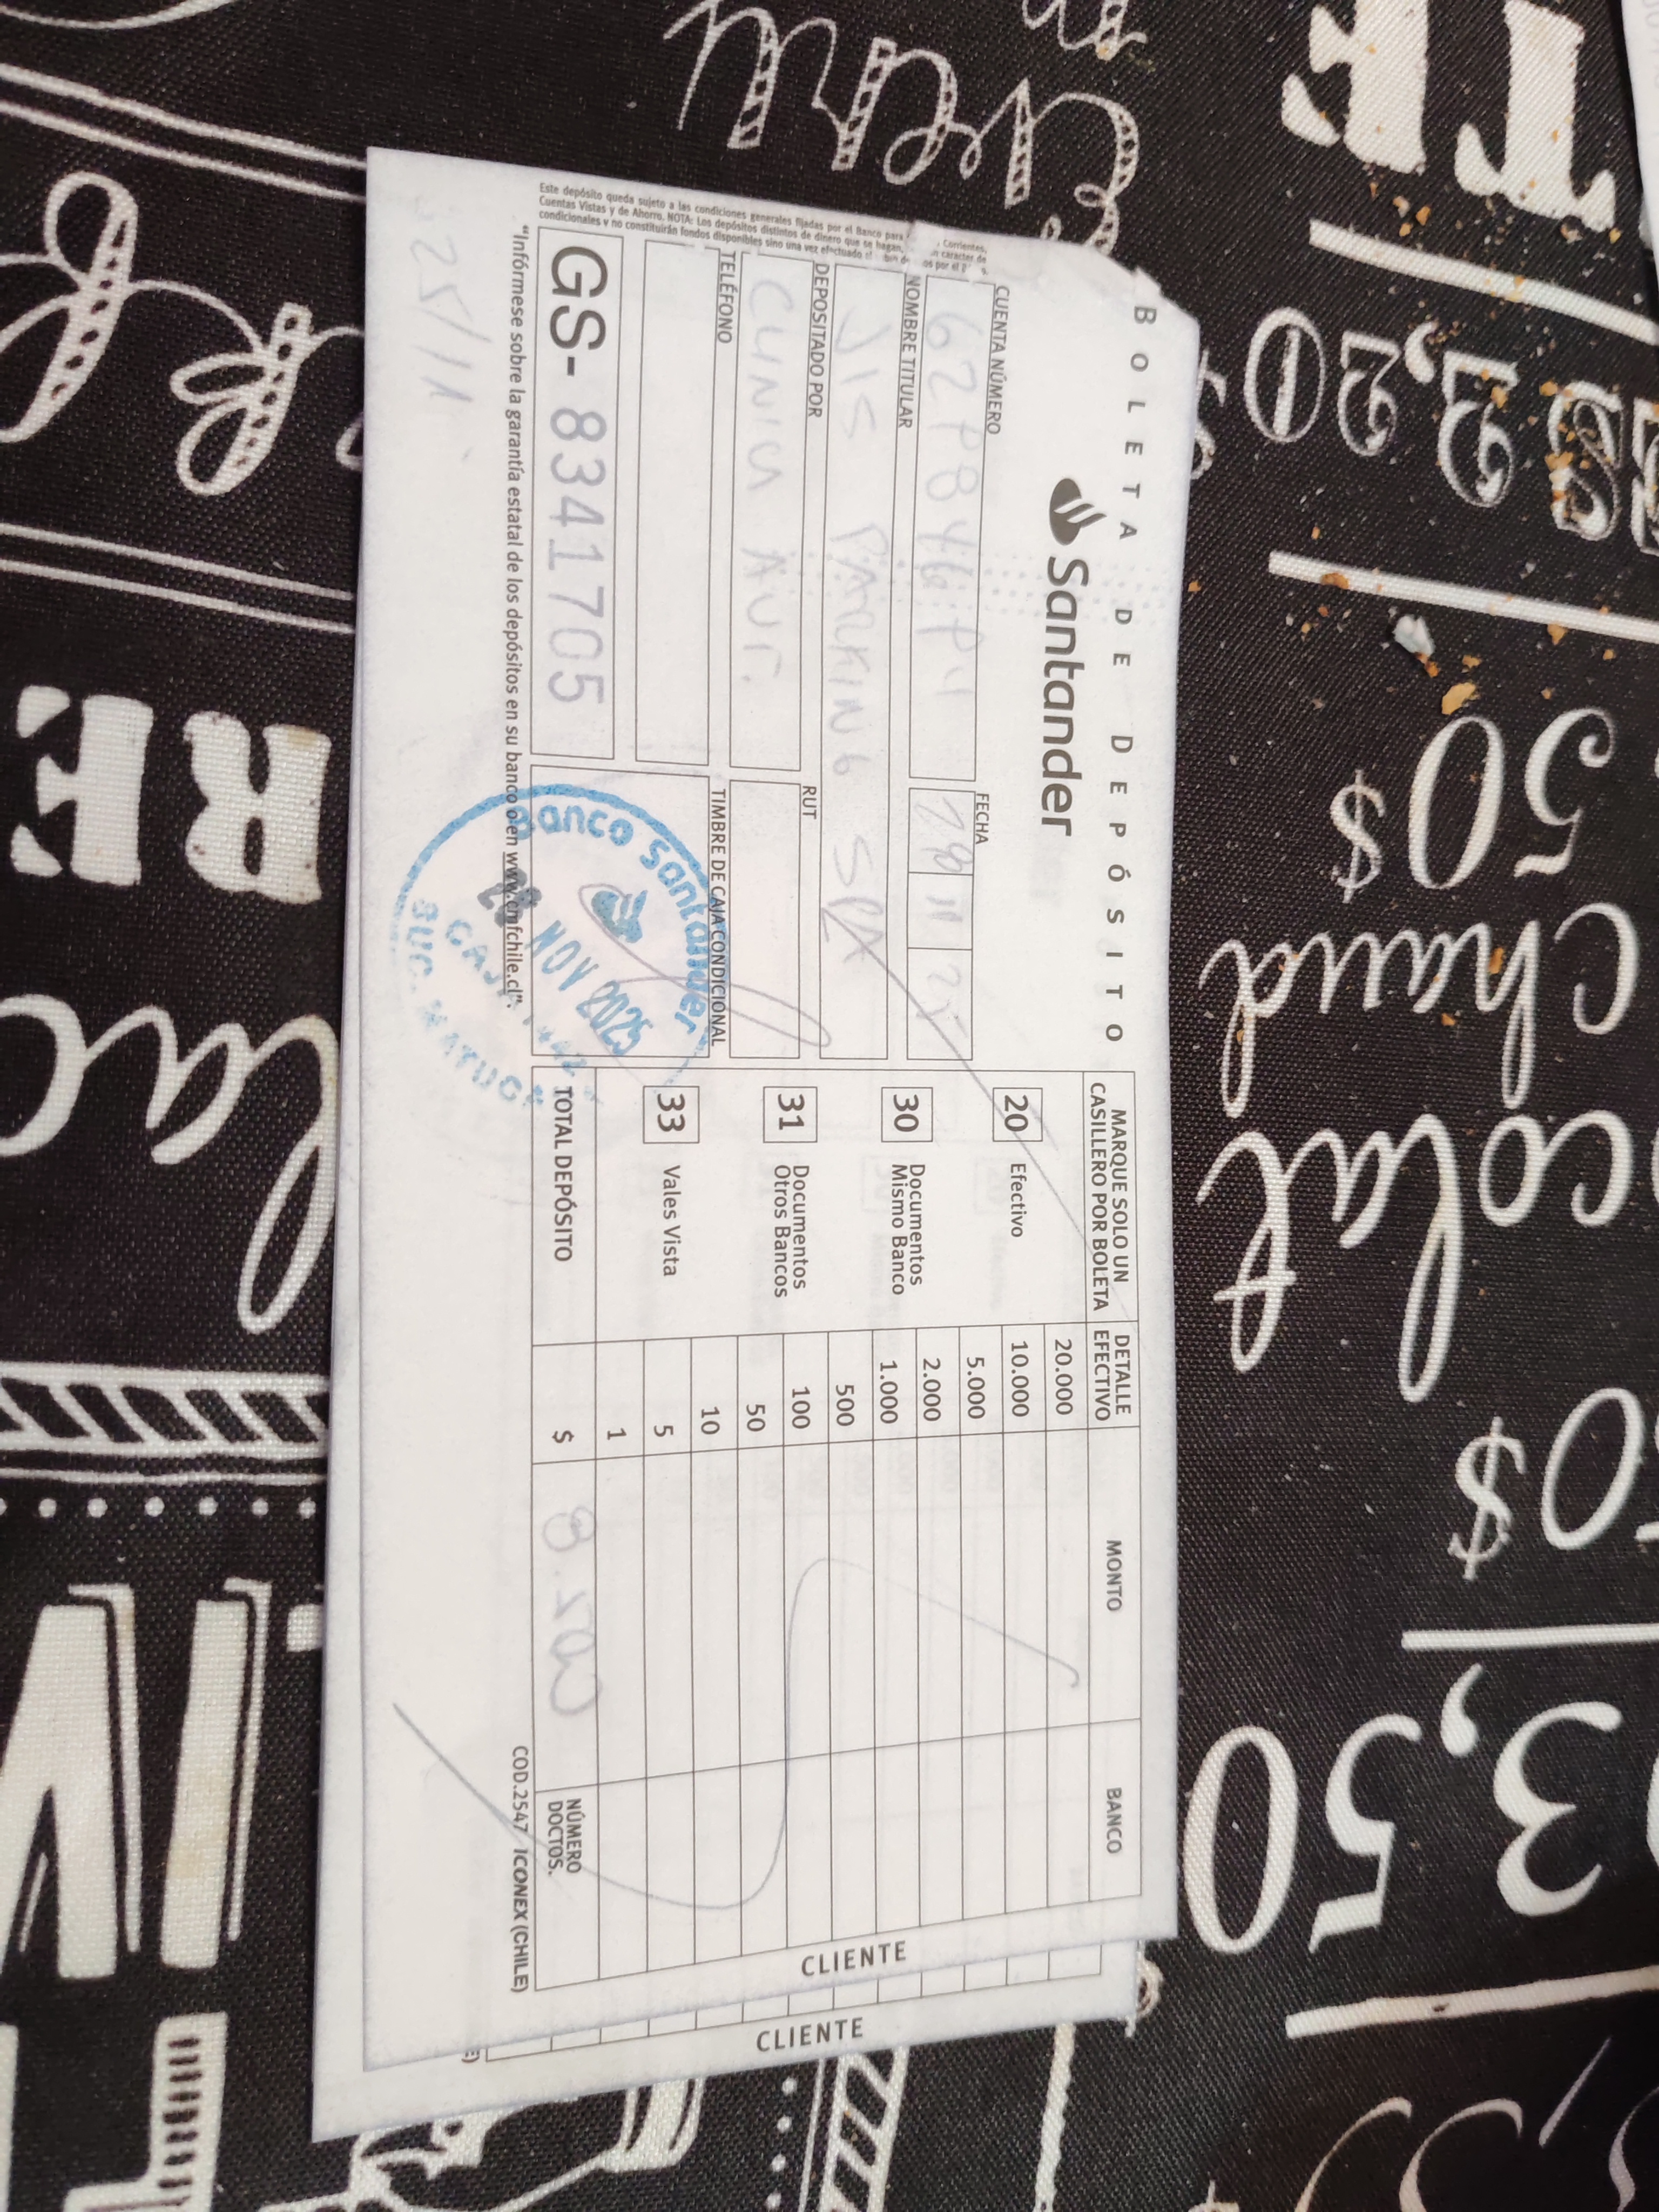 BOLETA DE DEPÓSITO
Santander
CUENTA NÚMERO
FECHA
11
NOMBRE TITULAR
JIS PARKING SPA
DEPOSITADO POR
RUT
TELÉFONO
TIMBRE DE CAJA CONDICIONAL
GS- 8341705
"Infórmese sobre la garantía estatal de los depósitos en su banco o en www.cmfchile.cl".
25/11
Banco Santander
NOV 2025
SUC.
MARQUE SOLO UN
CASILLERO POR BOLETA
DETALLE
EFECTIVO
MONTO
BANCO
20 Efectivo
30 Documentos
Mismo Banco
31 Documentos
Otros Bancos
33 Vales Vista
20.000
10.000
5.000
2.000
1.000
500
100
50
10
5
1
TOTAL DEPÓSITO $ 8.500
NÚMERO
DOCTOS.
COD.2547 ICONEX (CHILE)
CLIENTE
CLIENTE
Este depósito queda sujeto a las condiciones generales fijadas por el Banco para Corrientes,
Cuentas Vistas y de Ahorro. NOTA: Los depósitos distintos de dinero que se hagan, caracter de
condicionales y no constituirán fondos disponibles sino una vez efectuado por el
50$
chaud
colat
3,50